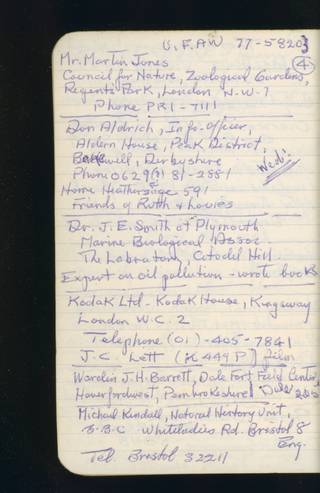 U.F.A.W 77-5820
4
Mr. Martin Jones
Council for Nature, Zoological Gardens,
Regents Park, London N.W.1
Phone PRI-7111
Don Aldrich, Info-Officer,
Aldern House, Peak District,
Bakewell, Derbyshire
Phone 0629 81-2881
Home Heathersage 591
Friends of Ruth & Louies
Dr. J.E. Smith at Plymouth
Marine Biological Assoc.
The Labratory, Citadel Hill.
Expert on oil pollution - wrote books
Kodak Ltd - Kodak House, Kingsway
London W.C. 2
Telephone (01)-405-7841
J.C. Lett film
Warden J.H. Barrett, Dale Fort Field Center,
Haverfordwest, Pembrokeshire Dale
Michael Kendall, Natural History Unit,
B.B.C Whiteladies Rd. Bristol 8
Eng.
Tel Bristol 32211